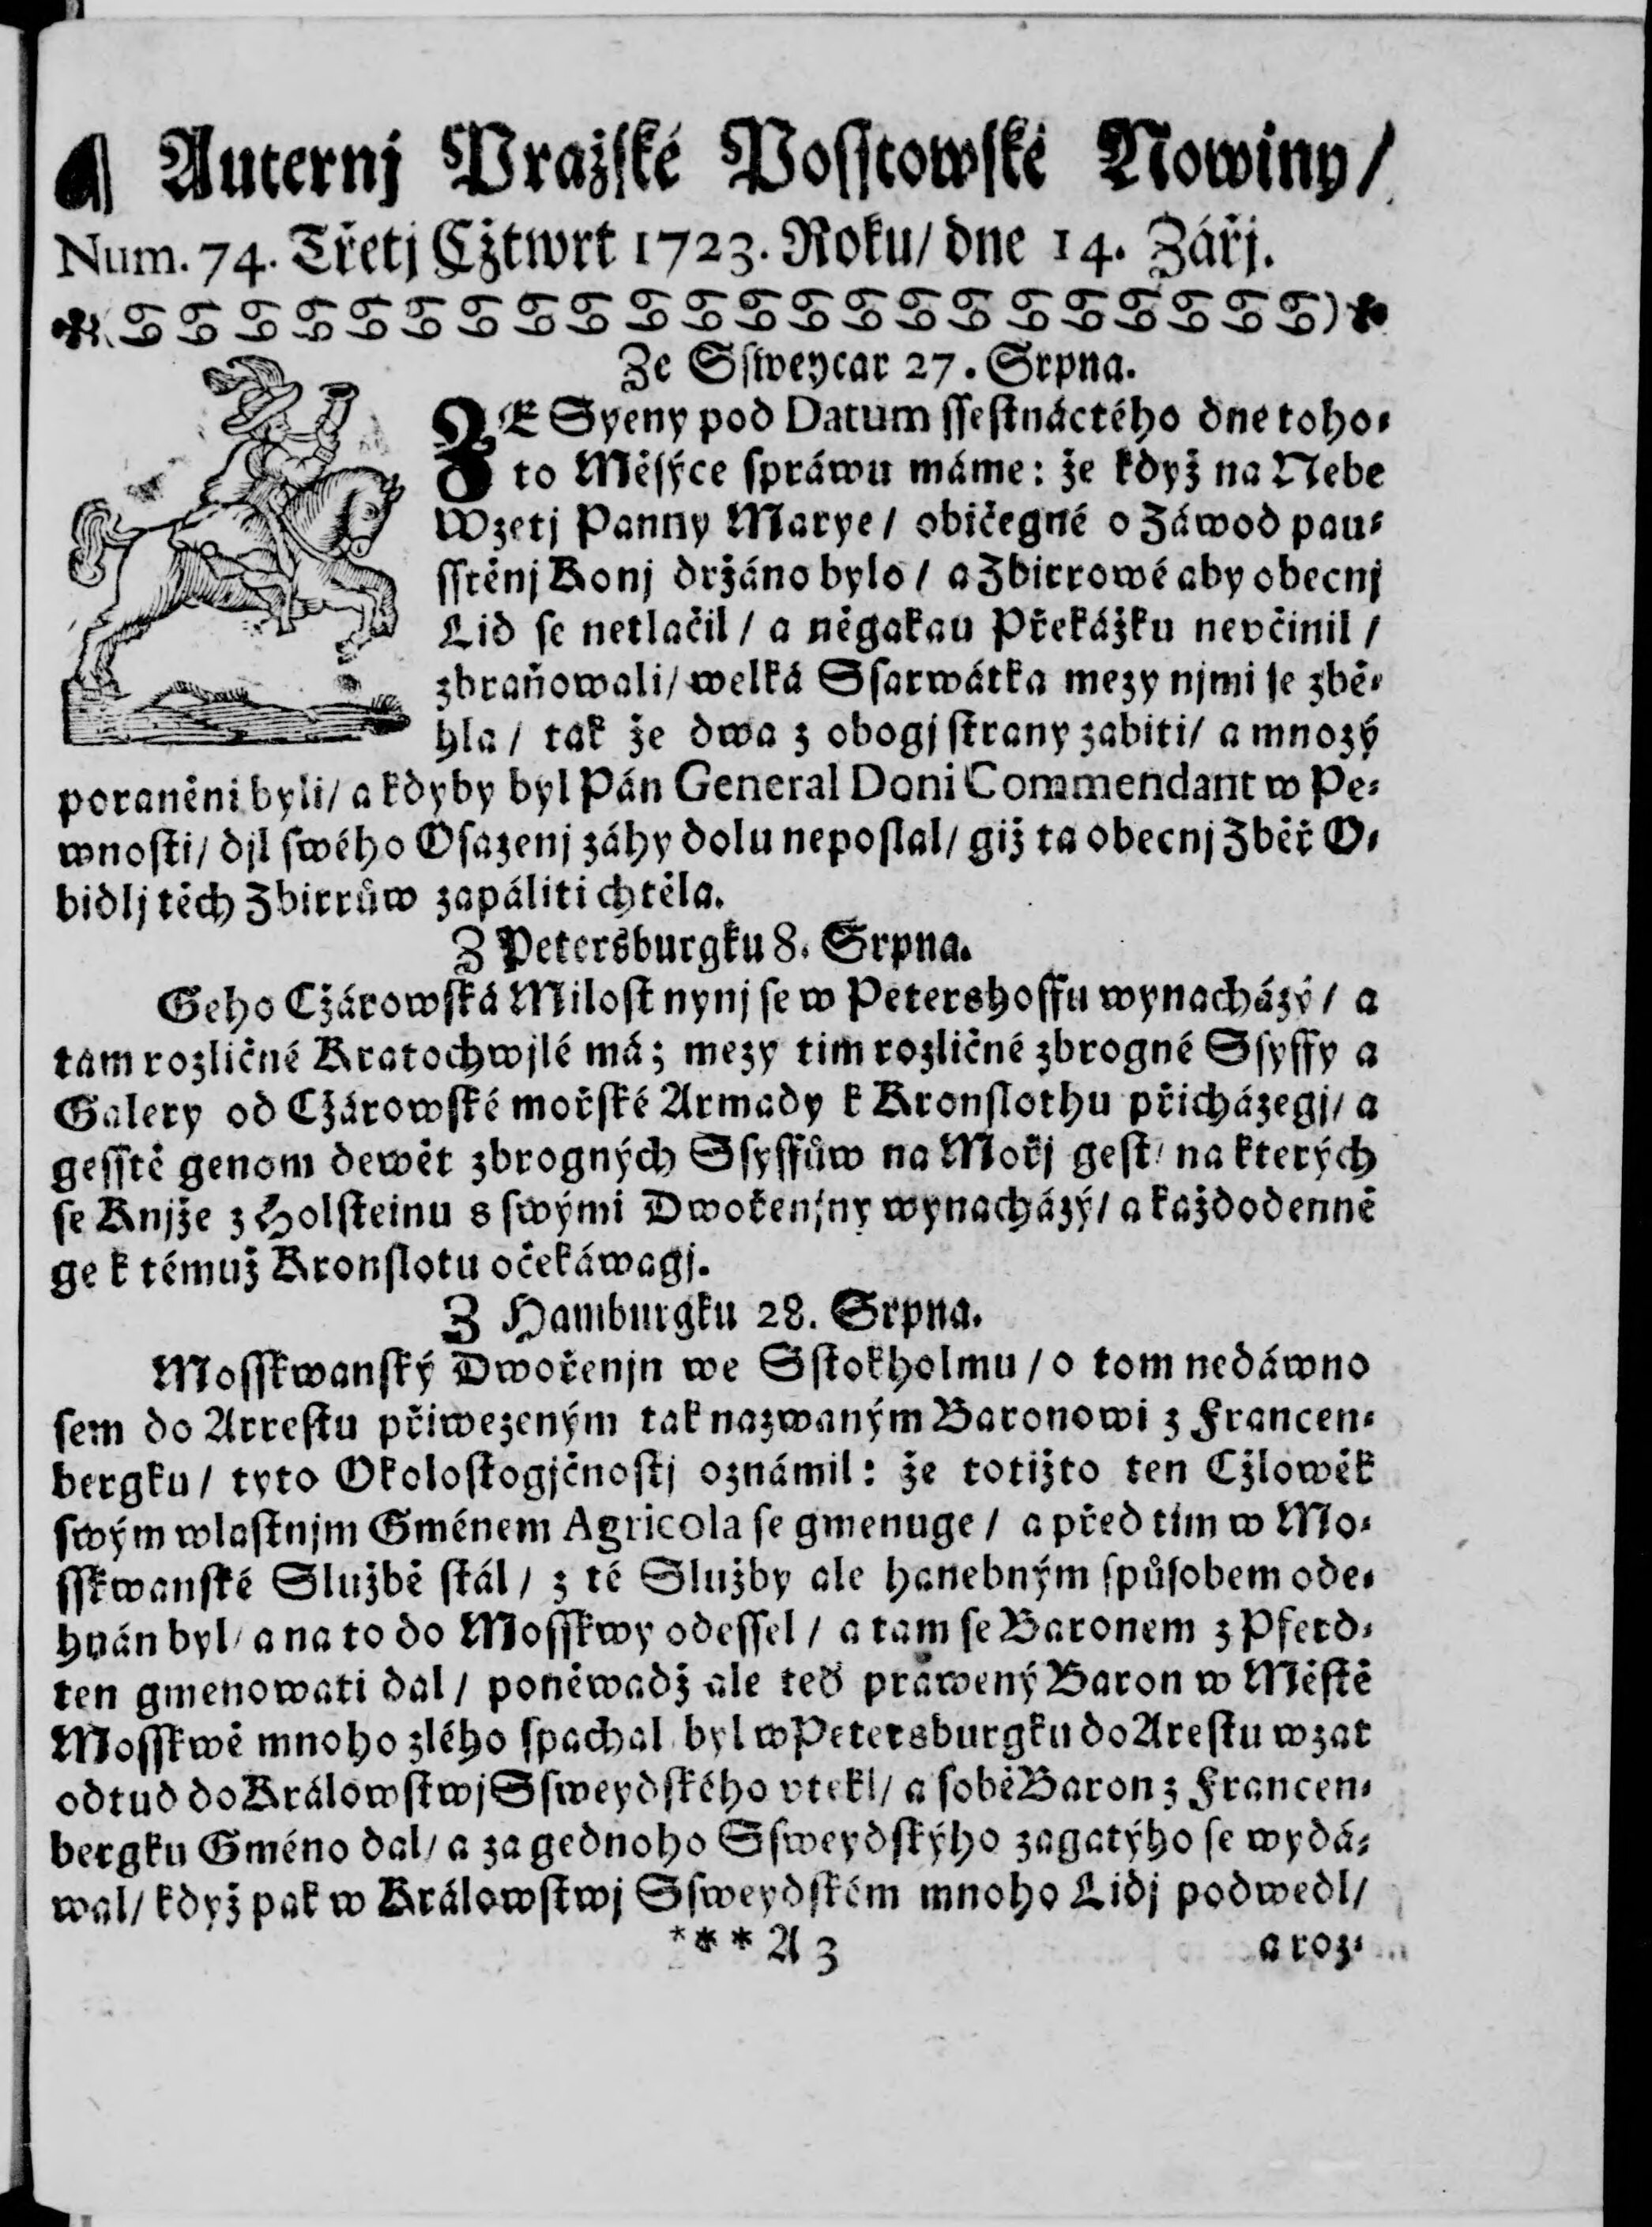 Auternj Pražské Posstowské Nowiny/
Num. 74. Třetj Cžtwrt 1723. Roku/ dne 14. Zářj.
Ze Ssweycar 27. Srpna.
ZE Syeny pod Datum ssestnáctého dne toho-
to Měsýce spráwu máme: že když na Nebe
Wzetj Panny Marye/ običegné o Záwod pau-
sstěnj Konj držáno bylo/ a Zbirrowé aby obecnj
Lid se netlačil/ a něgakau Překážku nevčinil/
zbraňowali/ welká Ssarwátka mezy njmi se zbě-
hla/ tak že dwa z obogj strany zabiti/ a mnozý
poraněni byli/ a kdyby byl Pán General Doni Commendant w Pe-
wnosti/ djl swého Osazenj záhy dolu neposlal/ giž ta obecnj Zběř O-
bidlj těch Zbirrůw zapáliti chtěla.
Z Petersburgku 8. Srpna.
Geho Cžárowská Milost nynj se w Petershoffu wynacházý/ a
tam rozličné Kratochwjlé má; mezy tim rozličné zbrogné Ssyffy a
Galery od Cžárowské mořské Armady k Kronslothu přicházegj/ a
gesstě genom dewět zbrogných Ssyffůw na Mořj gest/ na kterých
se Knjže z Holsteinu s swými Dwořenjny wynacházý/ a každodenně
ge k témuž Kronslotu očekáwagj.
Z Hamburgku 28. Srpna.
Mosskwanský Dwořenjn we Sstokholmu/ o tom nedáwno
sem do Arrestu přiwezeným tak nazwaným Baronowi z Francen-
bergku/ tyto Okolostogjčnostj oznámil: že totižto ten Cžlowěk
swým wlastnjm Gménem Agricola se gmenuge/ a před tim w Mo-
sskwanské Službě stál/ z té Služby ale hanebným spůsobem ode-
hnán byl/ a na to do Mosskwy odessel/ a tam se Baronem z Pferd-
ten gmenowati dal/ poněwadž ale teď prawený Baron w Městě
Mosskwě mnoho zlého spachal byl w Petersburgku do Arestu wzat
odtud do Králowstwj Ssweydského vtekl/ a sobě Baron z Francen-
bergku Gméno dal/ a za gednoho Ssweydskýho zagatýho se wydá-
wal/ když pak w Králowstwj Ssweydském mnoho Lidj podwedl/
*** A 3 a roz-